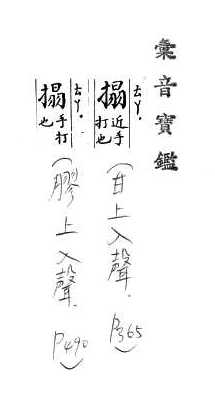 彙音寶鑑
搨 ㄊㄚˋ 近手打也
(甘上入聲. P365)
搨 ㄊㄚˋ 手打也
(膠上入聲. P490)